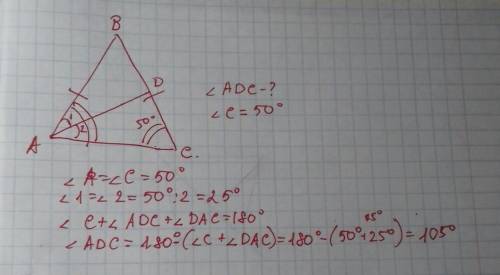 B
D
∠ADC - ?
∠C = 50°
1
2
50°
A
C.
∠A = ∠C = 50°
∠1 = ∠2 = 50° : 2 = 25°
∠C + ∠ADC + ∠DAC = 180°
75°
∠ADC = 180° - (∠C + ∠DAC) = 180° - (50° + 25°) = 105°